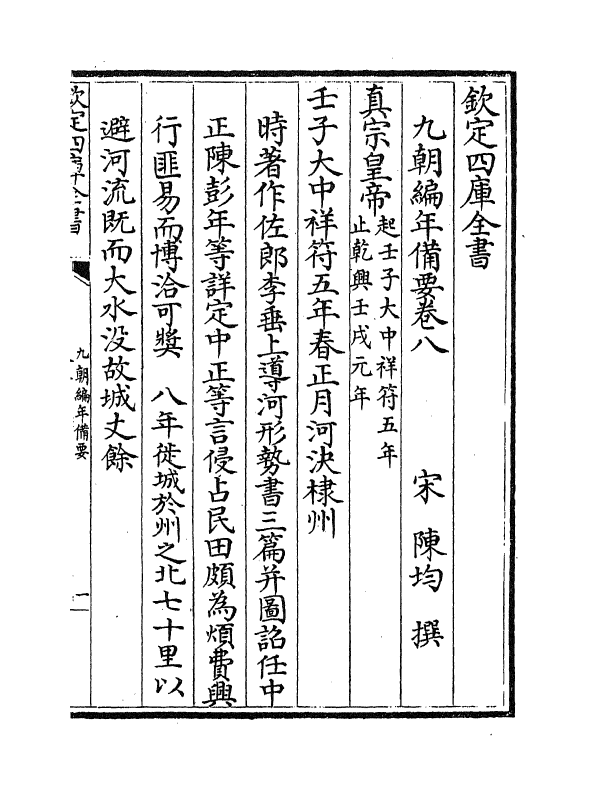 欽定四庫全書
九朝編年備要卷八
宋 陳均 撰
真宗皇帝
起壬子大中祥符五年
止乾興壬戌元年
壬子大中祥符五年春正月河決棣州
時著作佐郎李垂上導河形勢書三篇并圖詔任中
正陳彭年等詳定中正等言侵占民田頗為煩費興
行匪易而博洽可奬 八年徙城於州之北七十里以
避河流既而大水没故城丈餘
欽定四庫全書
九朝編年備要
一